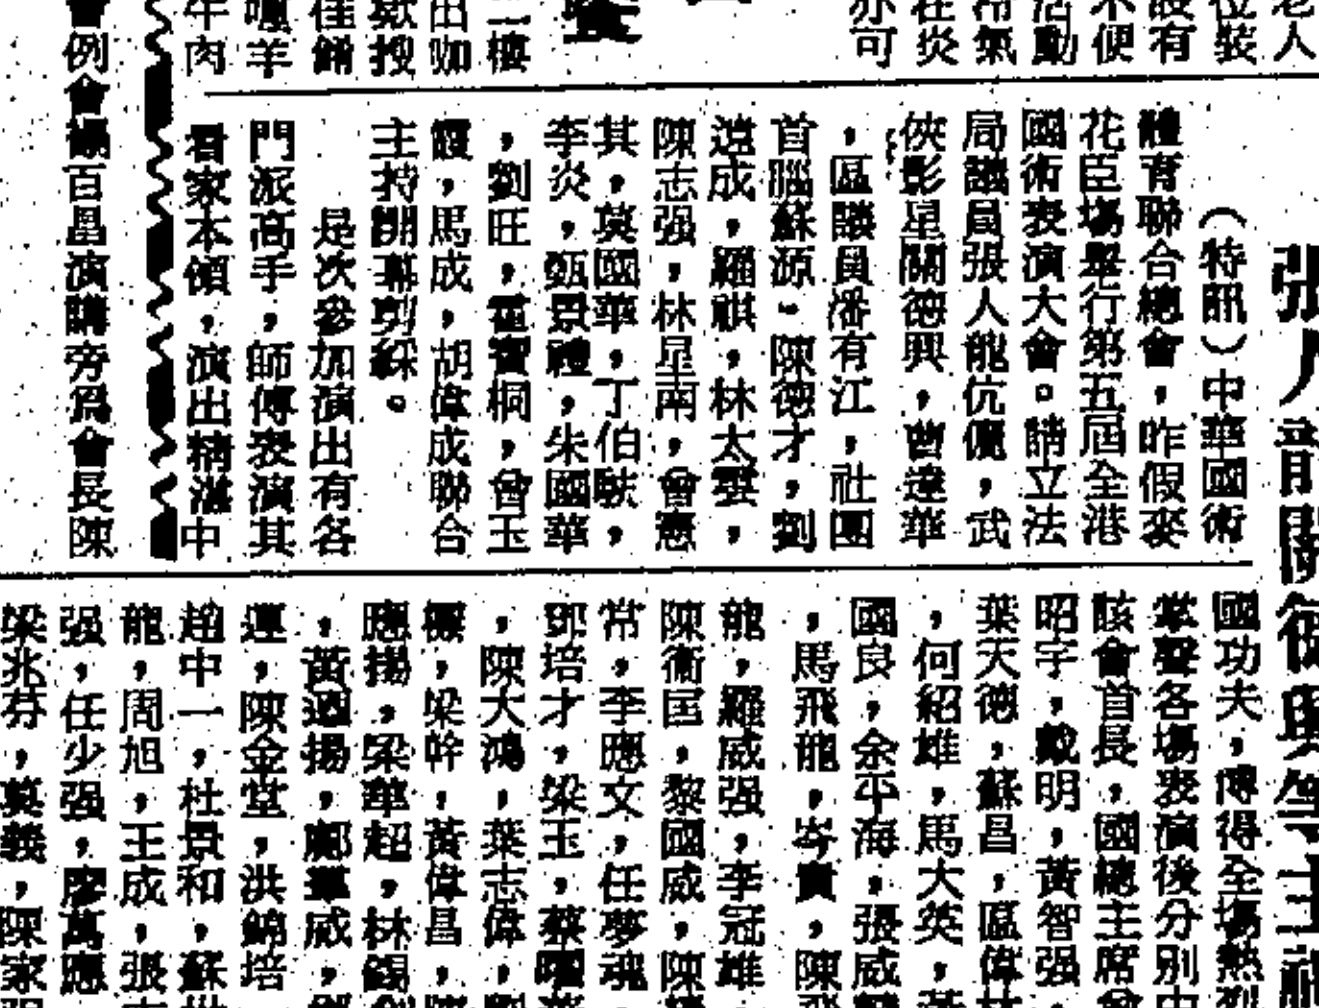 張人龍關德興等主禮
老人
位裝
設有
不便
活動
冷氣
在炎
亦可
二樓
出咖
佳餚
羊
牛肉
（特訊）中華國術
體育聯合總會，昨假麥
花臣塲舉行第五屆全港
國術表演大會。請立法
局議員張人龍伉儷，武
俠影星關德興，曾達華
，區議員潘有江，社團
首腦蘇源、陳德才，劉
遠成，羅祺，林太雲，
陳志强，林星南，曾憲
其，莫國華，丁伯駃，
李炎，甄景禮，朱國華
，劉旺，霍寶桐，曾玉
霞，馬成，胡偉成聯合
主持開幕剪綵。
是次參加演出有各
門派高手，師傅表演其
看家本領，演出精湛中
國功夫，博得全塲熱烈
掌聲各塲表演後分別由
該會首長，國總主席
昭宇，戴明，黃智强
葉天德，蘇昌，區偉
，何紹雄，馬大英，
國良，余平海，張威
，馬飛龍，岑實，陳
龍，羅威强，李冠雄
陳衞匡，黎國威，陳
常，李應文，任夢魂
鄧培才，梁玉，蔡
，陳大鴻，葉志偉，
梁幹，黃偉昌，
應揚，梁華超，林錫
，黃 揚，鄺 威，
運，陳金堂，洪錦培
趙中一，杜景和，蘇
龍，周旭，王成，張
强，任少强，廖萬應
梁兆芬，莫義，陳家
會例會 百昌演講旁爲會長陳